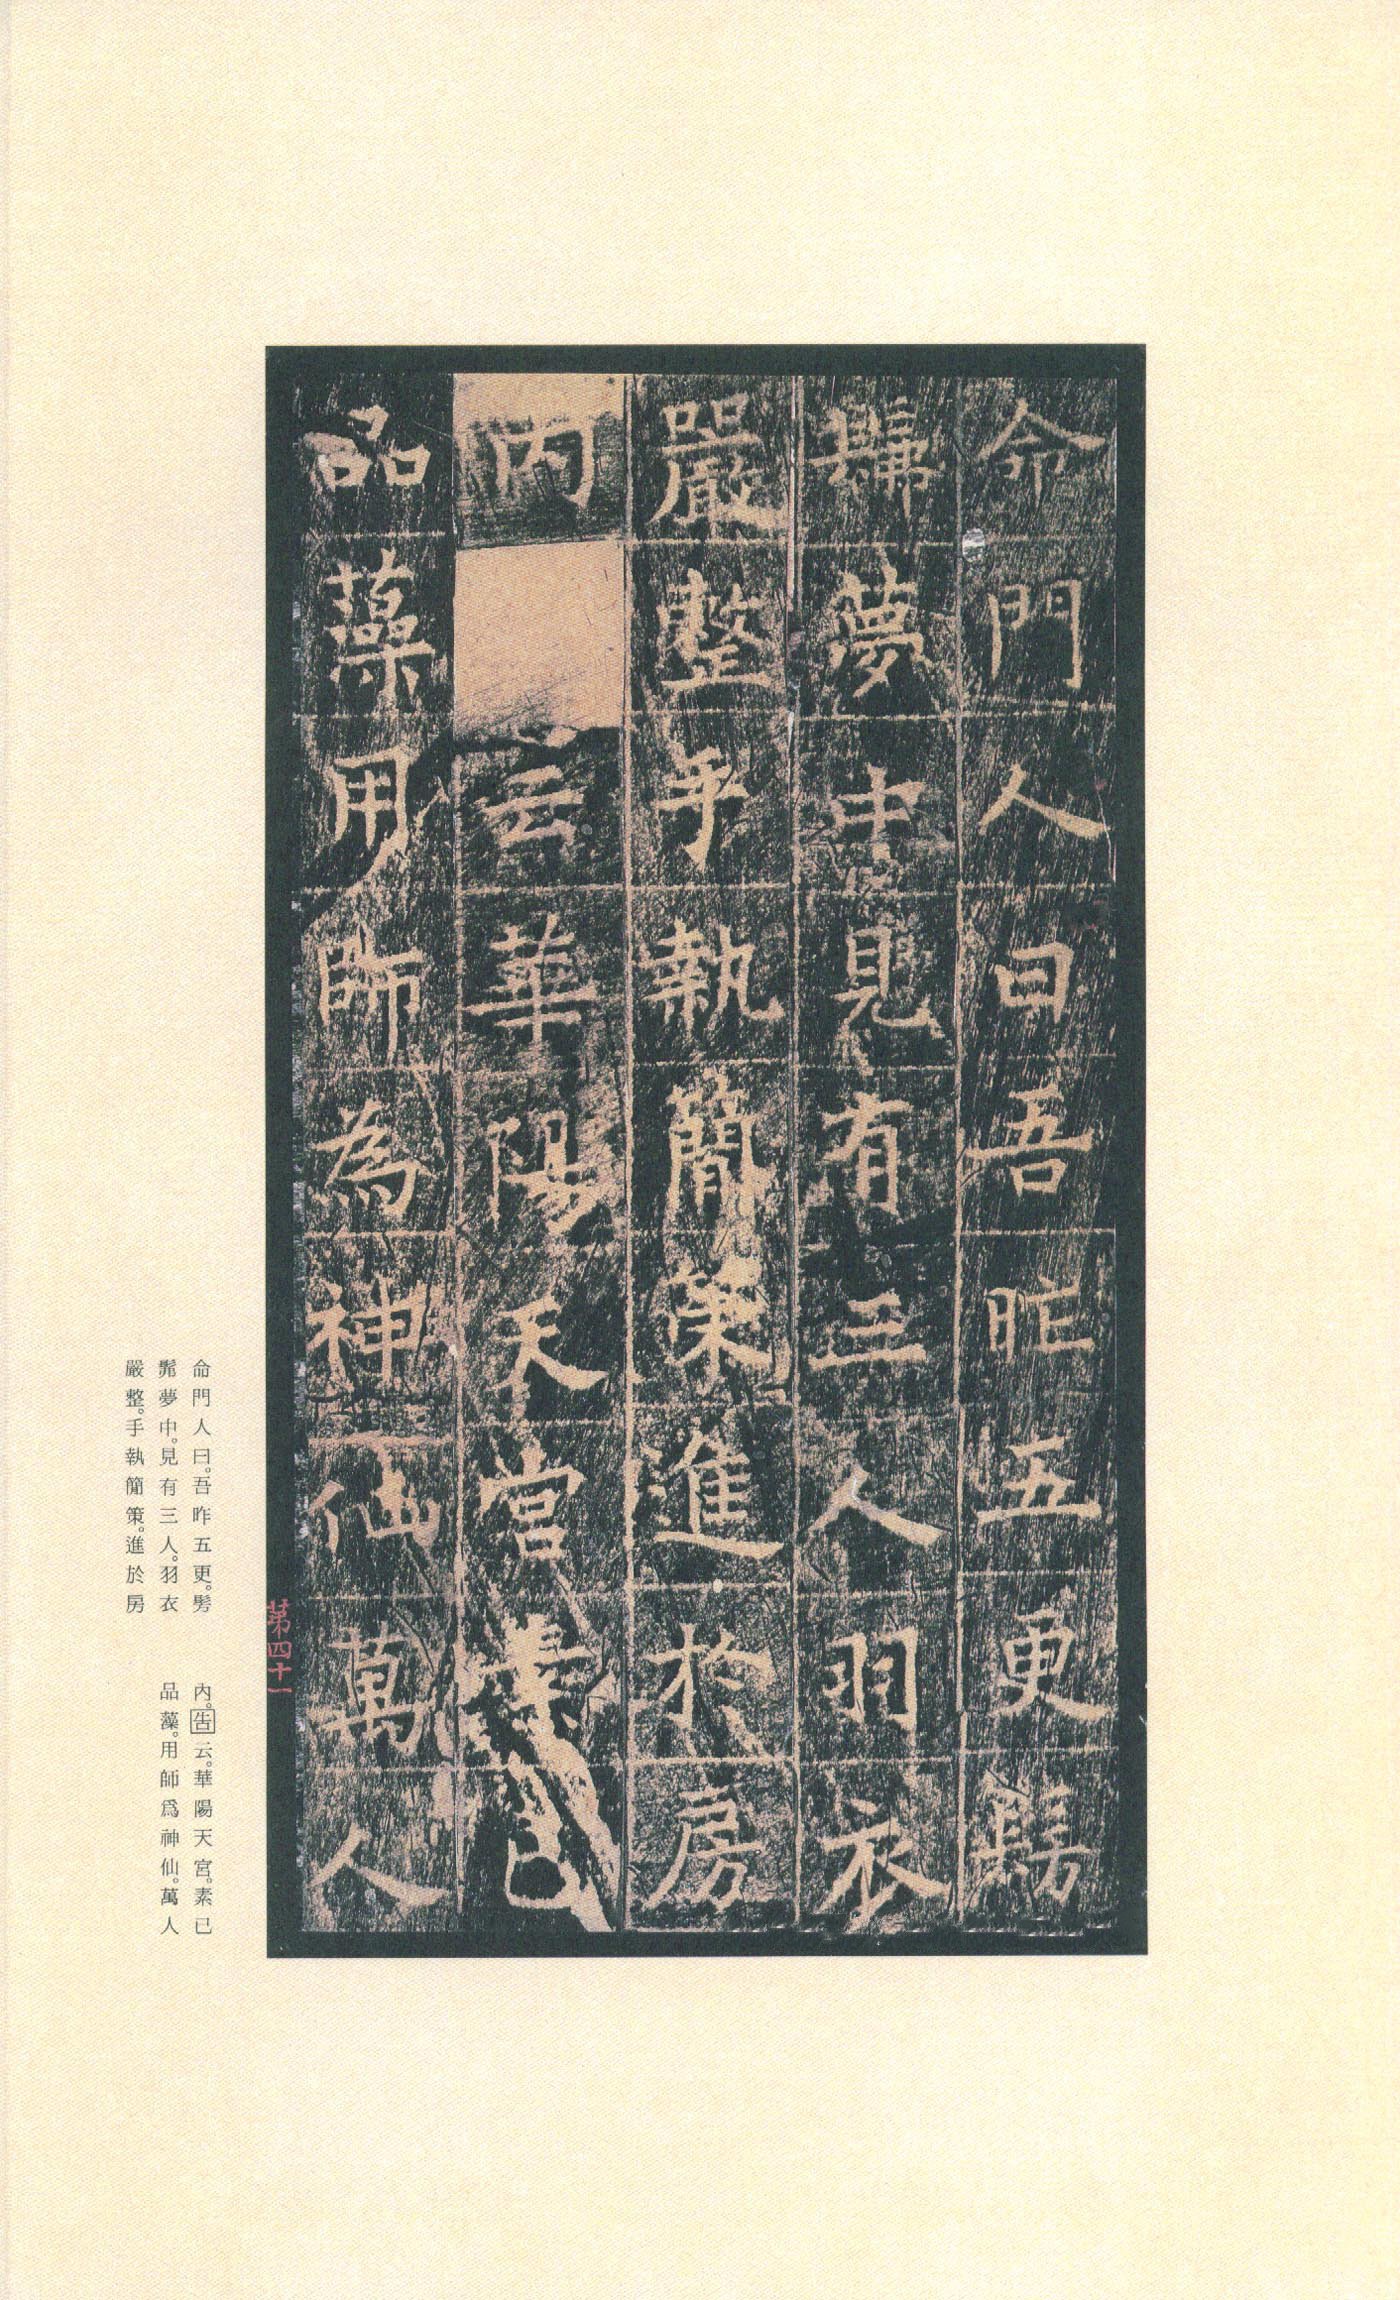 命門人曰吾昨五更髣
髴夢中見有三人羽衣
嚴整手執簡策進於房
內云華陽天宮素已
品藻用師為神仙萬人
第四十一
命門人曰。吾昨五更。髣
髴夢中。見有三人。羽衣
嚴整。手執簡策。進於房
內。告云。華陽天宮。素已
品藻。用師爲神仙。萬人